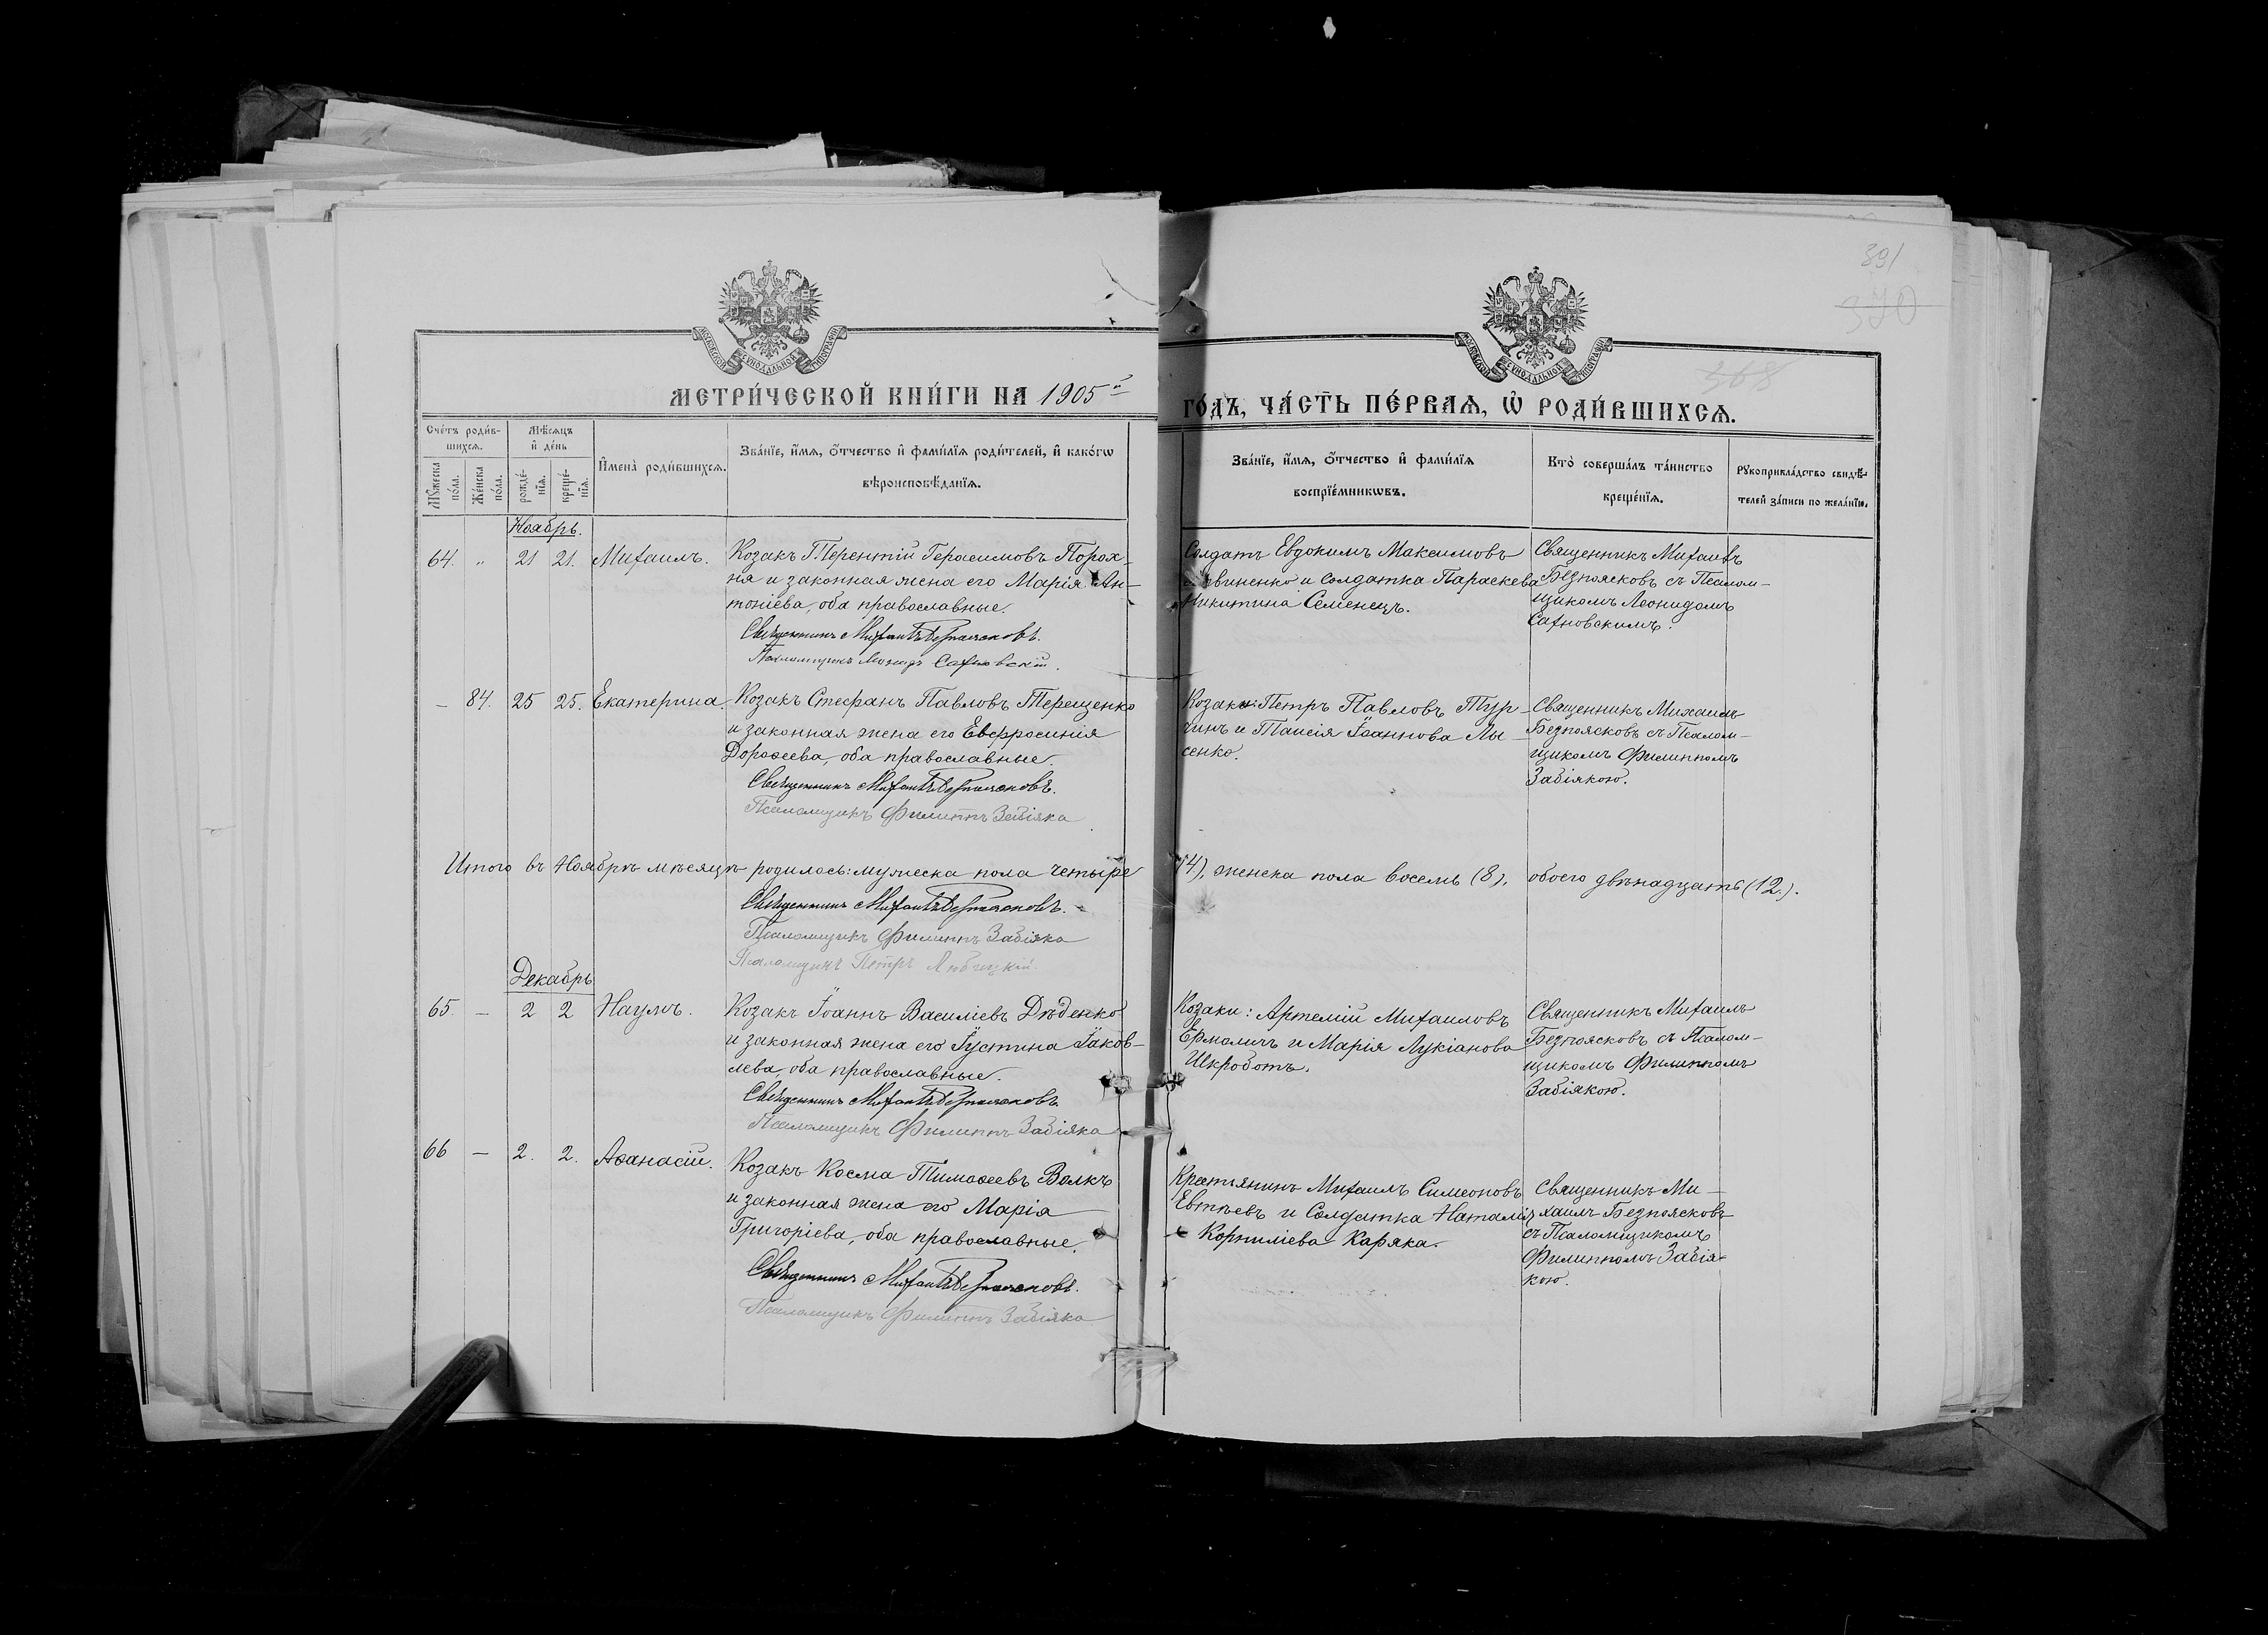 391
370
368
МОСКОВСКОЙ СѴНОДАЛЬНОЙ ТИПОГРАФІИ
МОСКОВСКОЙ СѴНОДАЛЬНОЙ ТИПОГРАФІИ
МЕТРИ́ЧЕСКОЙ КНИ́ГИ НА 1905й
ГО́ДЪ, ЧА́СТЬ ПЕ́РВАѦ, Ѡ РОДИ́ВШИХСѦ.
Сче́тъ роди́в-
шихсѧ.
Мꙋ́жеска
по́ла.
Же́нска
по́ла.
Мѣ́сѧцъ
и҆ де́нь
рожде́-
нїѧ.
креще́-
нїѧ.
И҆мена̀ роди́вшихсѧ.
Зва́нїе, и҆́мѧ, ѻ҆́тчество и҆ фами́лїѧ роди́телей, и҆ како́гѡ
вѣроисповѣ́данїѧ.
Зва́нїе, и҆́мѧ, ѻ҆́тчество и҆ фами́лїѧ
воспрїе́мникѡвъ.
Кто̀ соверша́лъ та́инство
креще́нїѧ.
Рꙋкоприкла́дство свидѣ́-
телей за́писи по жела́нїю.
Ноябрь.
64. „ 21 21. Михаилъ.
Козакъ Терентій Герасимовъ Порох-
ня и законная жена его Марія Ан-
тоніева, оба православные.
Священникъ Михаилъ Безпоясковъ.
Псаломщикъ Леонидъ Сахновскій.
Солдатъ Евдокимъ Максимовъ
Литвиненко и солдатка Параскева
Никитина Семенецъ.
Священникъ Михаилъ
Безпоясковъ съ Псалом-
щикомъ Леонидомъ
Сахновскимъ.
— 84. 25 25. Екатерина.
Козакъ Стефанъ Павловъ Терещенко
и законная жена его Евфросинія
Дороѳеева, оба православные.
Священникъ Михаилъ Безпоясковъ.
Псаломщикъ Филиппъ Забіяка
Козаки: Петръ Павловъ Тур-
чинъ и Таисія Іоаннова Лы-
сенко.
Священникъ Михаилъ
Безпоясковъ съ Псалом-
щикомъ Филиппомъ
Забіякою.
Итого въ Ноябрѣ мѣсяцѣ родилось: мужеска пола четыре (4), женска пола восемь (8), обоего двѣнадцать (12.).
Священникъ Михаилъ Безпоясковъ.
Псаломщикъ Филиппъ Забіяка
Псаломщикъ Петръ Любицкій.
Декабрь
65. — 2 2 Наумъ.
Козакъ Іоаннъ Василіевъ Дѣденко
и законная жена его Іустина Іаков-
лева, оба православные.
Священникъ Михаилъ Безпоясковъ
Псаломщикъ Филиппъ Забіяка
Козаки: Артемій Михаиловъ
Ермоличъ и Марія Лукіанова
Шкроботъ.
Священникъ Михаилъ
Безпоясковъ съ Псалом-
щикомъ Филиппомъ
Забіякою.
66 — 2. 2. Аѳанасій.
Козакъ Косма Тимоѳеевъ Волкъ
и законная жена его Марія
Григоріева, оба православные.
Священникъ Михаилъ Безпоясковъ.
Псаломщикъ Филиппъ Забіяка
Крестьянинъ Михаилъ Симеоновъ
Евтѣевъ и Солдатка Наталія
Корниліева Каряка.
Священникъ Ми-
хаилъ Безпоясковъ
съ Псаломщикомъ
Филиппомъ Забія-
кою.